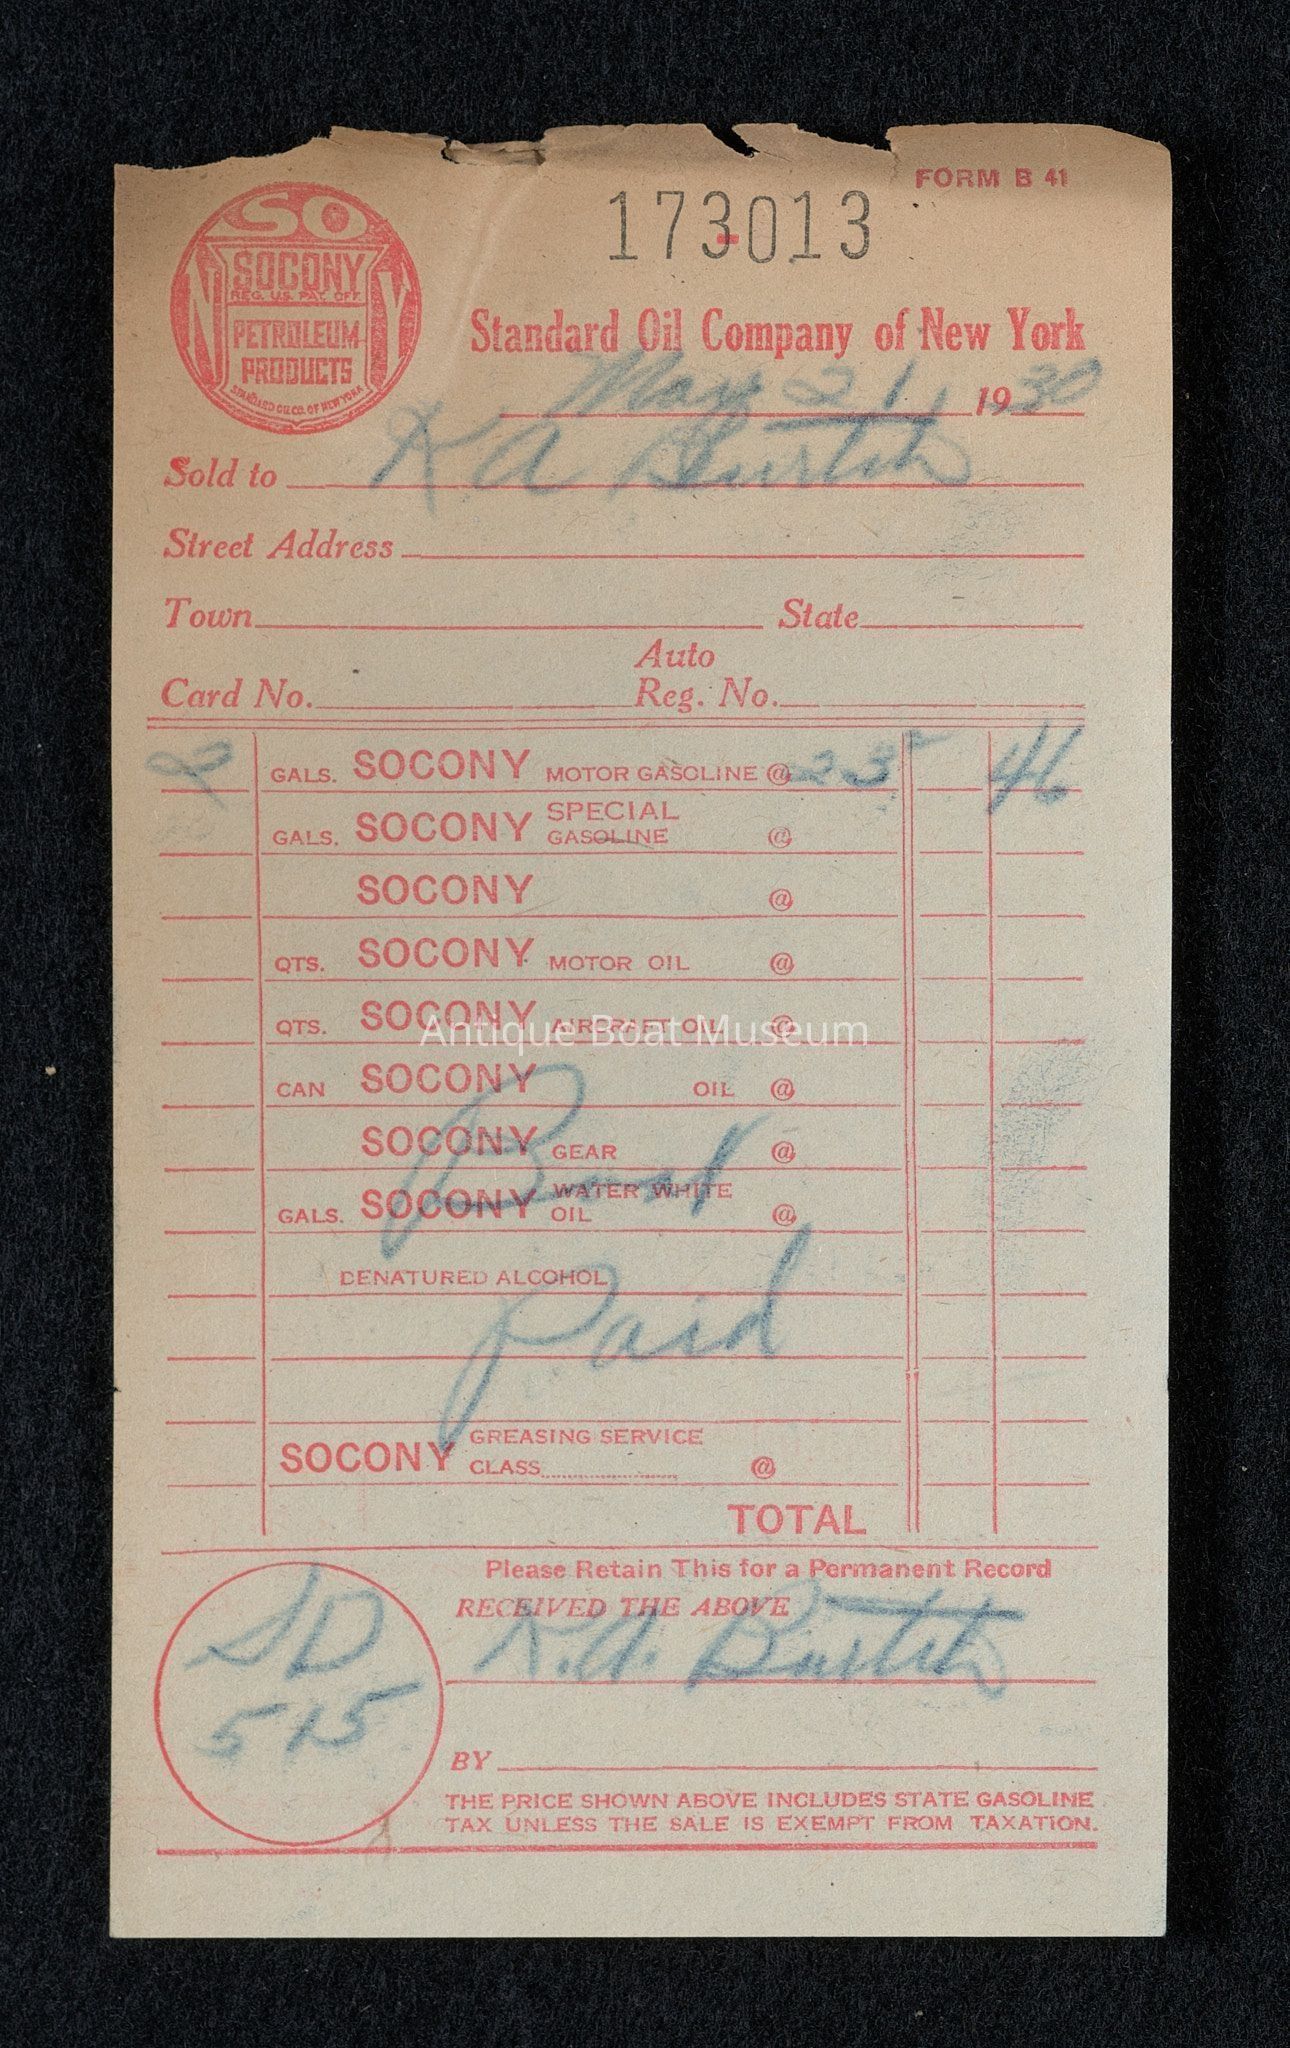 FORM B 41
173-013
SO
N Y
SOCONY
REG. U.S. PAT. OFF.
PETROLEUM
PRODUCTS
STANDARD OIL CO. OF NEW YORK
Standard Oil Company of New York
May 21 1930
Sold to K A Burtch
Street Address
Town State
Auto
Card No. Reg. No.
2 GALS. SOCONY MOTOR GASOLINE @ 23 46
GALS. SOCONY SPECIAL GASOLINE @
SOCONY @
QTS. SOCONY MOTOR OIL @
QTS. SOCONY AIRCRAFT OIL @
Antique Boat Museum
CAN SOCONY OIL @
SOCONY GEAR @
Boat
GALS. SOCONY WATER WHITE OIL @
DENATURED ALCOHOL
Paid
SOCONY GREASING SERVICE
CLASS @
TOTAL
Please Retain This for a Permanent Record
RECEIVED THE ABOVE
K.A. Burtch
SD
515
BY
THE PRICE SHOWN ABOVE INCLUDES STATE GASOLINE
TAX UNLESS THE SALE IS EXEMPT FROM TAXATION.